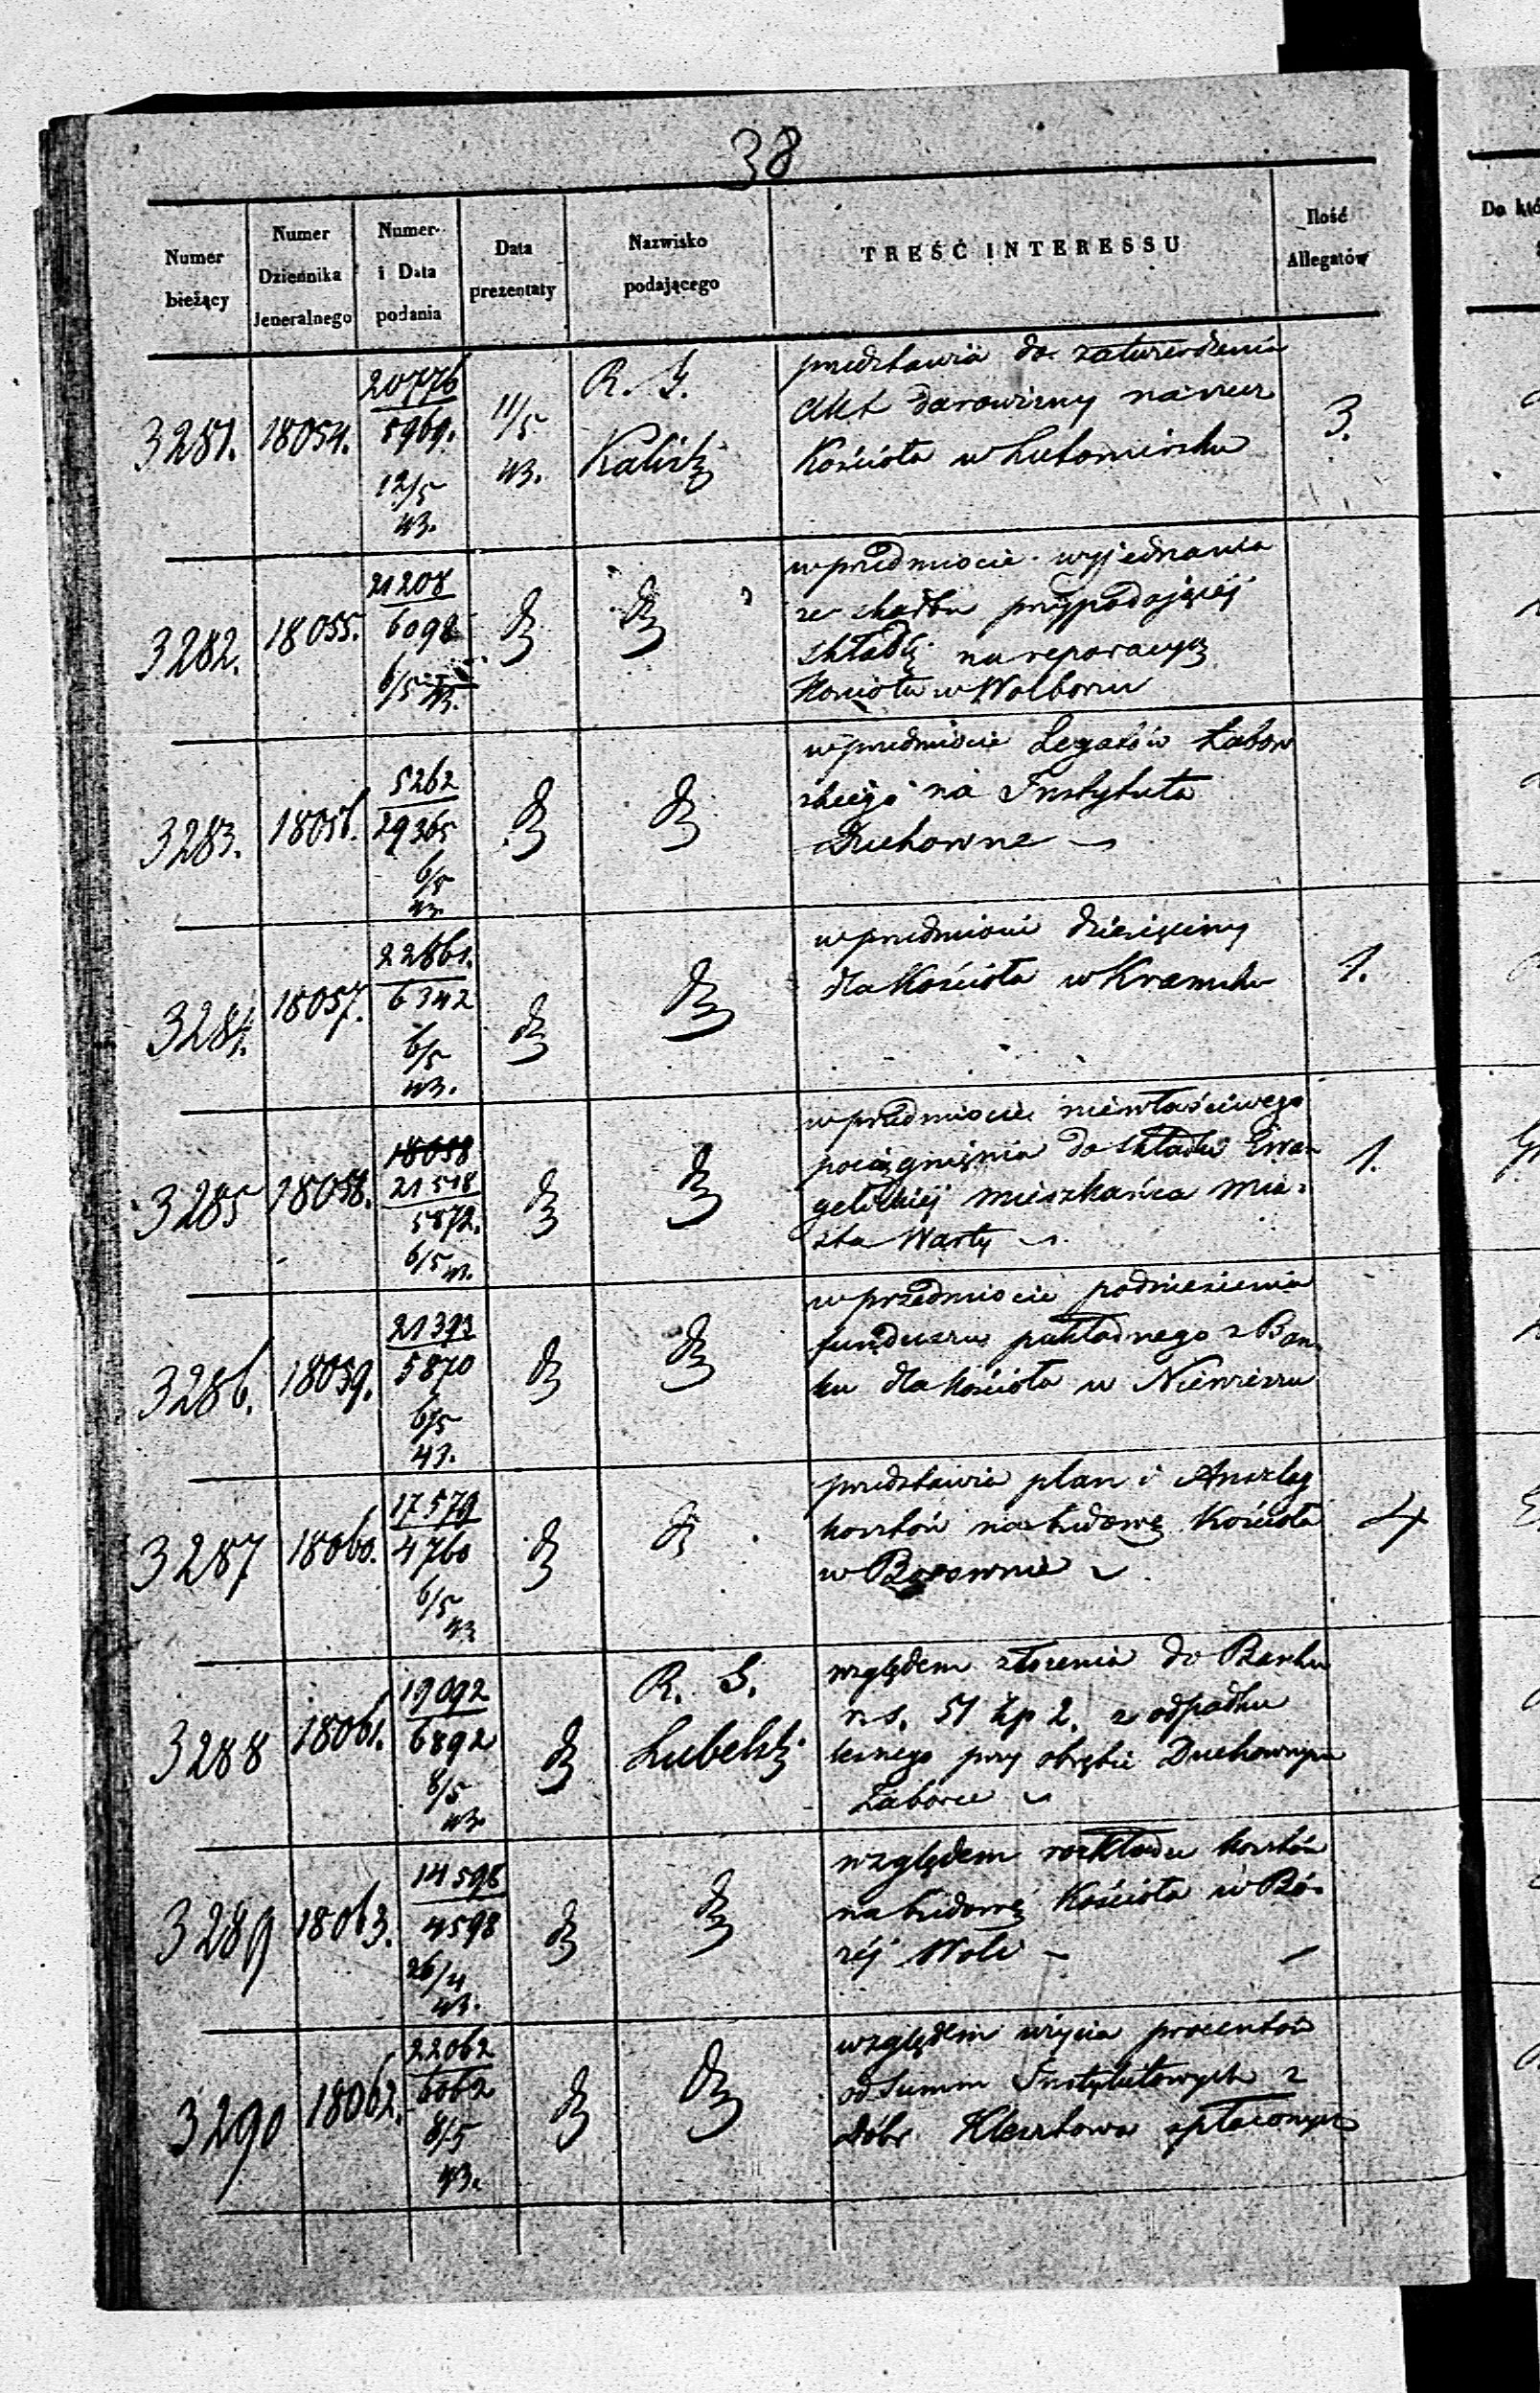 38
Numer bieżący
Numer Dziennika Jeneralnego
Numer i Data podania
Data prezentaty
Nazwisko podającego
TREŚĆ INTERESSU
Ilość Allegatów
Do któ
3281. 18054. 20776 / 5969. 12/5 43. 11/5 43. R. G. Kalisk
przedstawia do zatwierdzenia
Akt darowizny na rzecz
Kościoła w Lutomiersku
3.
3282. 18055. 21208 / 6098 6/5 43. dt dt
w przedmiocie wyjednania
ze skarbu przypadającej
składki na reparacyą
Kościoła w Wolborzu
3283. 18056. 5262 / 29365 6/5 43. dt dt
w przedmiocie Legatów Łabow
skiego na Instytuta
Duchowne
3284. 18057. 22861. / 6342 6/5 43. dt dt
w przedmiocie dziesięciny
dla Kościoła w
1.
3285 18058. 18058 21518 / 5872. 6/5 43. dt dt
w przedmiocie niewłaściwego
pociągnięnia do składki Ewan
gelickiej mieszkańca mia
sta Warty
1.
3286. 18059. 21393 / 5870 6/5 43. dt dt
w przedmiocie podniesienia
funduszu pokładnego z Ban
ku dla Kościoła w Niemierzu
3287 18060. 17579 / 4760 6/5 43 dt dt
przedstawia plan i Anszlag
kosztów na budowę Kościoła
w Borownie
4
3288 18061. 19092 / 6892 8/5 43. dt R. G. Lubelsk
względem złożenia do Banku
rs. 51 kp 2. z odpadku
leśnego przy obrębie Duchownym
Zaborce
3289 18063. 14598 / 4598 26/4 43. dt dt
względem rozkładu kosztów
na budowę Kościoła w Bo
żej Woli
3290 18062. 22062 / 6062 8/5 43. dt dt
względem użycia procentów
od Summ Instytutowych z
dóbr Kleszłowa spłaconych